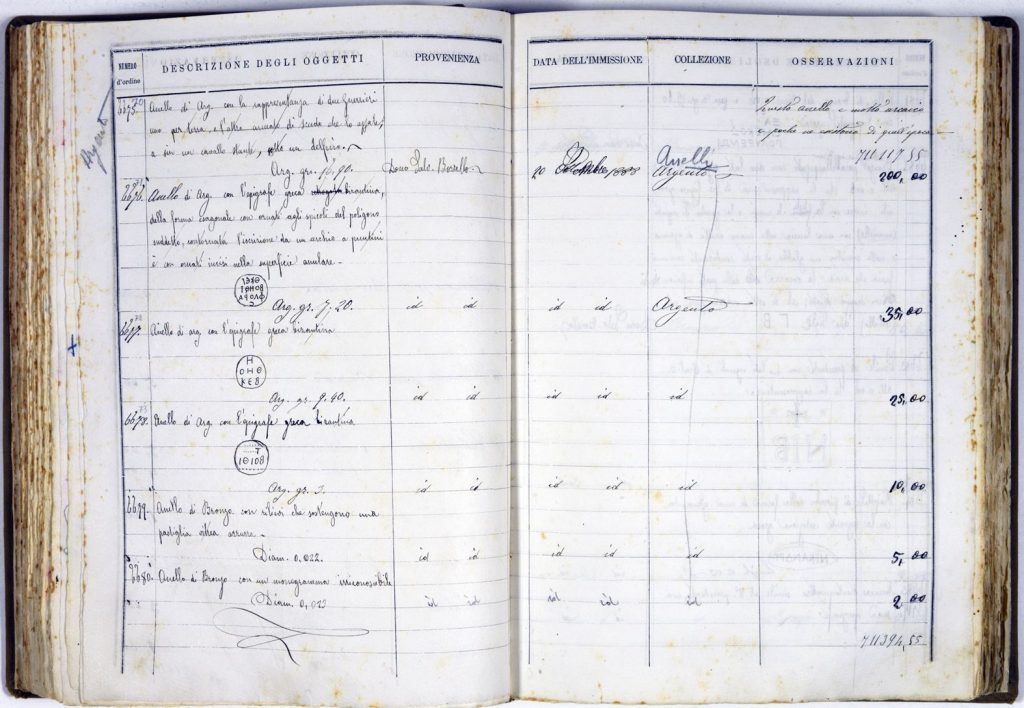 NUMERO
d'ordine
DESCRIZIONE DEGLI OGGETTI
PROVENIENZA
DATA DELL'IMMISSIONE
COLLEZIONE
OSSERVAZIONI
Argento
6675. Anello di Arg. con la rappresentanza di due Guerrieri
uno per terra, e l'altro armato di scudo che lo
a sin un cavallo stante, sotto un delfino.
Questo anello è molto arcaico
e poche ne esistono di quest'epoca
711117 55
Arg. gr. 90.
Dono Borrello
20 1888
Anelli
Argento
200,00
6676. Anello di Arg. con l'epigrafe greca bizantina,
della forma esagonale con ornati agli spicoli del poligono
suddetto, contornata l'iscrizione da un cerchio a puntini
è con ornati incisi nella superficie anulare.
Arg. gr. 7,20.
id id
id id
Argento
35,00
6677. Anello di arg con l'epigrafe greca bizantina
H
ΟΗΘ
ΚΕΒ
Arg. gr. 9,40.
id id
id id
id
25,00
6678. Anello di Arg con l'epigrafe greca bizantina
T
ΙΘΙΟΒ
Arg. gr. 3.
id id
id id
id
10,00
6679. Anello di Bronzo con rilievi che sostengono una
pastiglia vitrea azzurra.
Diam. 0,022.
id id
id id
id
5,00
6680. Anello di Bronzo con un monogramma irriconoscibile
Diam. 0,023
id id
id id
id
2,00
711394,55